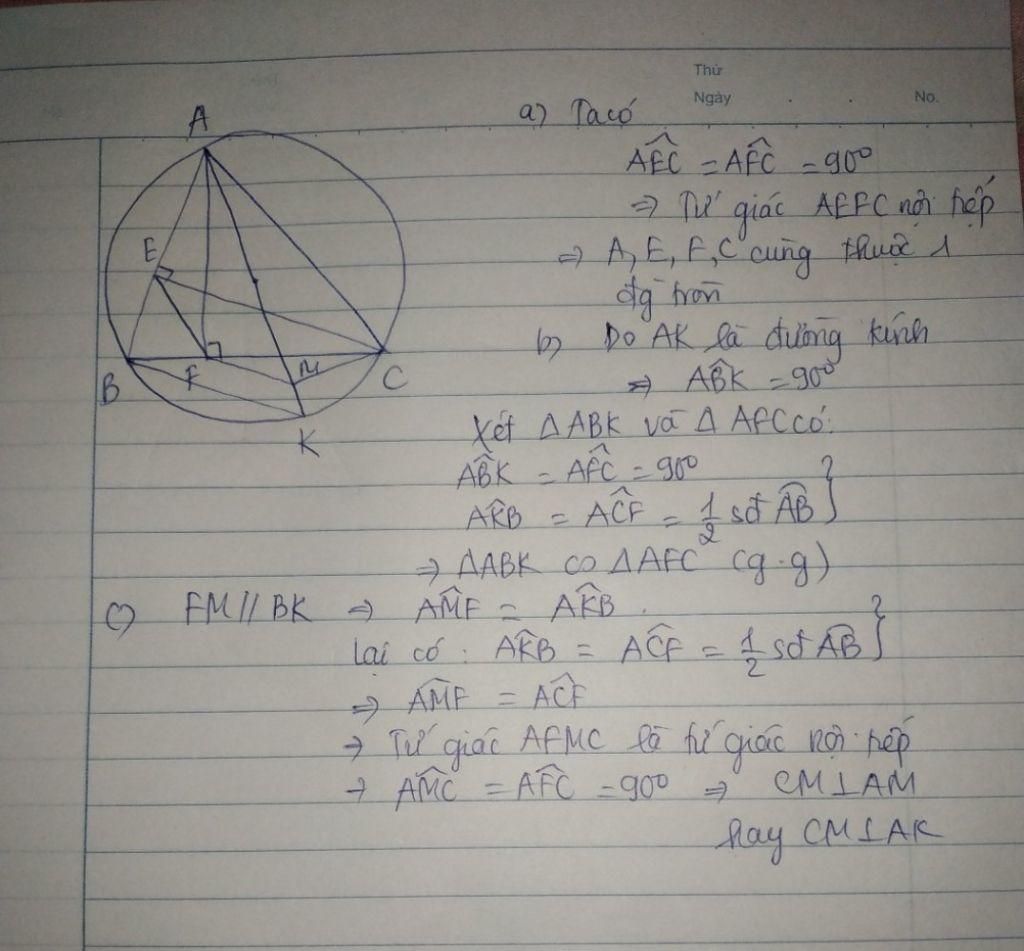 Thứ
Ngày . . No.
a) Ta có
A
AÊC = AF̂C = 90°
=> Tứ giác AEFC nội tiếp
E
=> A, E, F, C cùng thuộc 1
đg tròn
b) Do AK là đường kính
B F M C
=> AB̂K = 90°
K
Xét ΔABK và ΔAFC có:
AB̂K = AF̂C = 90°
AK̂B = AĈF = 1/2 sđ AB }
=> ΔABK ∽ ΔAFC (g.g)
c) FM // BK => AM̂F = AK̂B.
lại có: AK̂B = AĈF = 1/2 sđ AB }
=> AM̂F = AĈF
→ Tứ giác AFMC là tứ giác nội tiếp
→ AM̂C = AF̂C = 90° => CM⊥AM
hay CM⊥AK